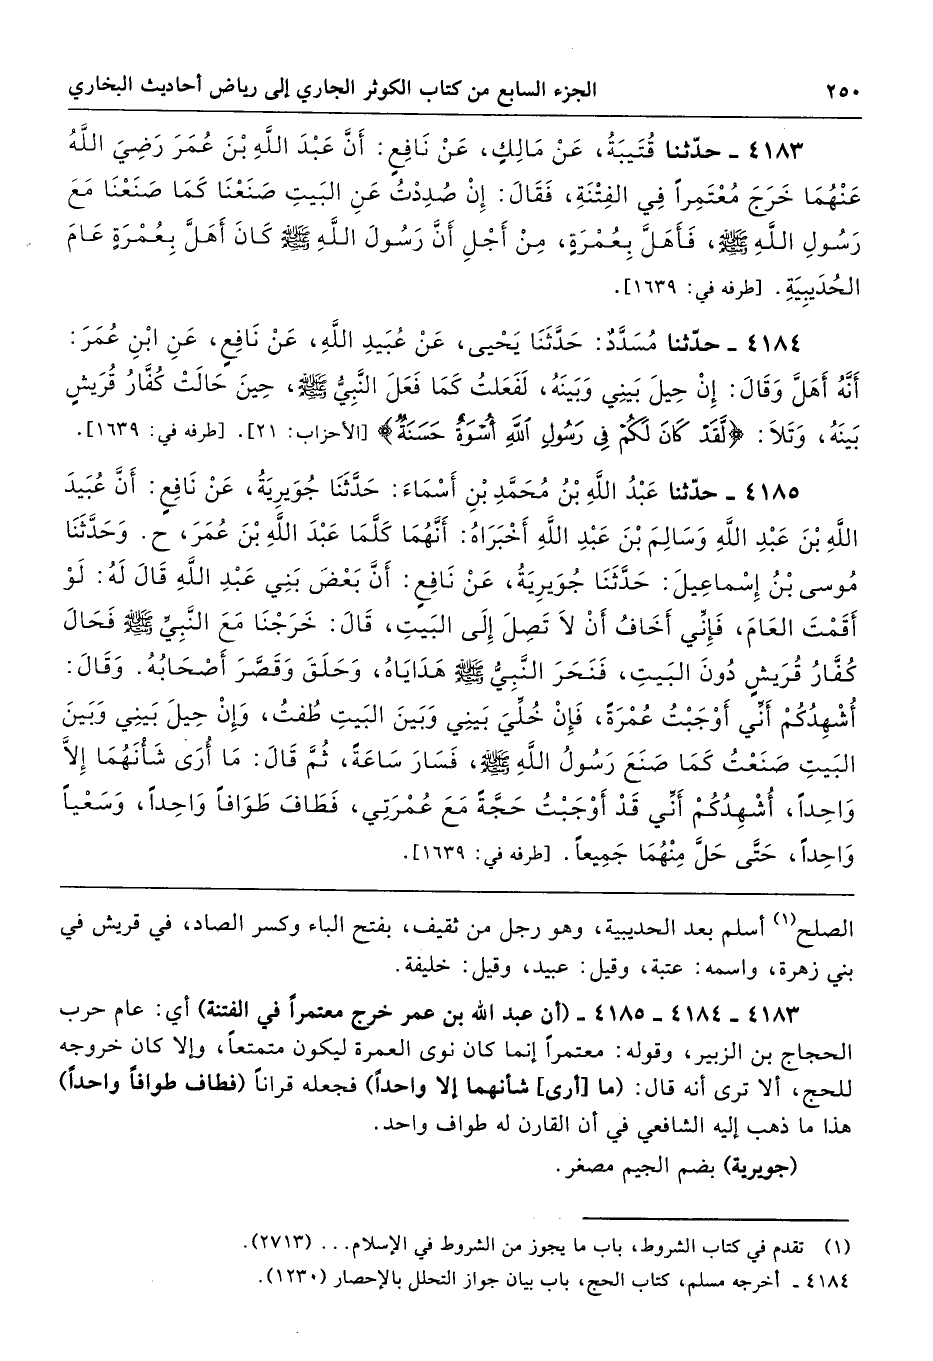 ٢٥٠ الجزء السابع من كتاب الكوثر الجاري إلى رياض أحاديث البخاري
٤١٨٣ ـ حدّثنا قُتَيبَةُ، عَنْ مَالِكٍ، عَنْ نَافِعٍ: أَنَّ عَبْدَ اللَّهِ بْنَ عُمَرَ رَضِيَ اللَّهُ
عَنْهُمَا خَرَجَ مُعْتَمِراً فِي الفِتْنَةِ، فَقَالَ: إِنْ صُدِدْتُ عَنِ البَيتِ صَنَعْنَا كَمَا صَنَعْنَا مَعَ
رَسُولِ اللَّهِ ﷺ، فَأَهَلَّ بِعُمْرَةٍ، مِنْ أَجْلِ أَنَّ رَسُولَ اللَّهِ ﷺ كَانَ أَهَلَّ بِعُمْرَةٍ عَامَ
الحُدَيبِيَةِ. [طرفه في: ١٦٣٩].
٤١٨٤ ـ حدّثنا مُسَدَّدٌ: حَدَّثَنَا يَحْيى، عَنْ عُبَيدِ اللَّهِ، عَنْ نَافِعٍ، عَنِ ابْنِ عُمَرَ:
أَنَّهُ أَهَلَّ وَقَالَ: إِنْ حِيلَ بَينِي وَبَينَهُ، لَفَعَلتُ كَمَا فَعَلَ النَّبِيُّ ﷺ، حِينَ حَالَتْ كُفَّارُ قُرَيشٍ
بَينَهُ، وَتَلاَ: ﴿لَّقَدْ كَانَ لَكُمْ فِي رَسُولِ اللَّهِ أُسْوَةٌ حَسَنَةٌ﴾ [الأحزاب: ٢١]. [طرفه في: ١٦٣٩].
٤١٨٥ ـ حدّثنا عَبْدُ اللَّهِ بْنُ مُحَمَّدِ بْنِ أَسْمَاءَ: حَدَّثَنَا جُوَيرِيَةُ، عَنْ نَافِعٍ: أَنَّ عُبَيدَ
اللَّهِ بْنَ عَبْدِ اللَّهِ وَسَالِمَ بْنَ عَبْدِ اللَّهِ أَخْبَرَاهُ: أَنَّهُمَا كَلَّمَا عَبْدَ اللَّهِ بْنَ عُمَرَ، ح. وَحَدَّثَنَا
مُوسى بْنُ إِسْماعِيلَ: حَدَّثَنَا جُوَيرِيَةُ، عَنْ نَافِعٍ: أَنَّ بَعْضَ بَنِي عَبْدِ اللَّهِ قَالَ لَهُ: لَوْ
أَقَمْتَ العَامَ، فَإِنِّي أَخَافُ أَنْ لاَ تَصِلَ إِلَى البَيتِ، قَالَ: خَرَجْنَا مَعَ النَّبِيِّ ﷺ فَحَالَ
كُفَّارُ قُرَيشٍ دُونَ البَيتِ، فَنَحَرَ النَّبِيُّ ﷺ هَدَايَاهُ، وَحَلَقَ وَقَصَّرَ أَصْحَابُهُ. وَقَالَ:
أُشْهِدُكُمْ أَنِّي أَوْجَبْتُ عُمْرَةً، فَإِنْ خُلِّيَ بَينِي وَبَينَ البَيتِ طُفتُ، وَإِنْ حِيلَ بَينِي وَبَينَ
البَيتِ صَنَعْتُ كَمَا صَنَعَ رَسُولُ اللَّهِ ﷺ، فَسَارَ سَاعَةً، ثُمَّ قَالَ: مَا أُرَى شَأْنَهُمَا إِلاَّ
وَاحِداً، أُشْهِدُكُمْ أَنِّي قَدْ أَوْجَبْتُ حَجَّةً مَعَ عُمْرَتِي، فَطَافَ طَوَافاً وَاحِداً، وَسَعْياً
وَاحِداً، حَتَّى حَلَّ مِنْهُمَا جَمِيعاً. [طرفه في: ١٦٣٩].
الصلح(١) أسلم بعد الحديبية، وهو رجل من ثقيف، بفتح الباء وكسر الصاد، في قريش في
بني زهرة، واسمه: عتبة، وقيل: عبيد، وقيل: خليفة.
٤١٨٣ ـ ٤١٨٤ ـ ٤١٨٥ ـ (أن عبد الله بن عمر خرج معتمراً في الفتنة) أي: عام حرب
الحجاج بن الزبير، وقوله: معتمراً إنما كان نوى العمرة ليكون متمتعاً، وإلا كان خروجه
للحج، ألا ترى أنه قال: (ما [أرى] شأنهما إلا واحداً) فجعله قراناً (فطاف طوافاً واحداً)
هذا ما ذهب إليه الشافعي في أن القارن له طواف واحد.
(جويرية) بضم الجيم مصغر.
(١) تقدم في كتاب الشروط، باب ما يجوز من الشروط في الإسلام... (٢٧١٣).
٤١٨٤ ـ أخرجه مسلم، كتاب الحج، باب بيان جواز التحلل بالإحصار (١٢٣٠).